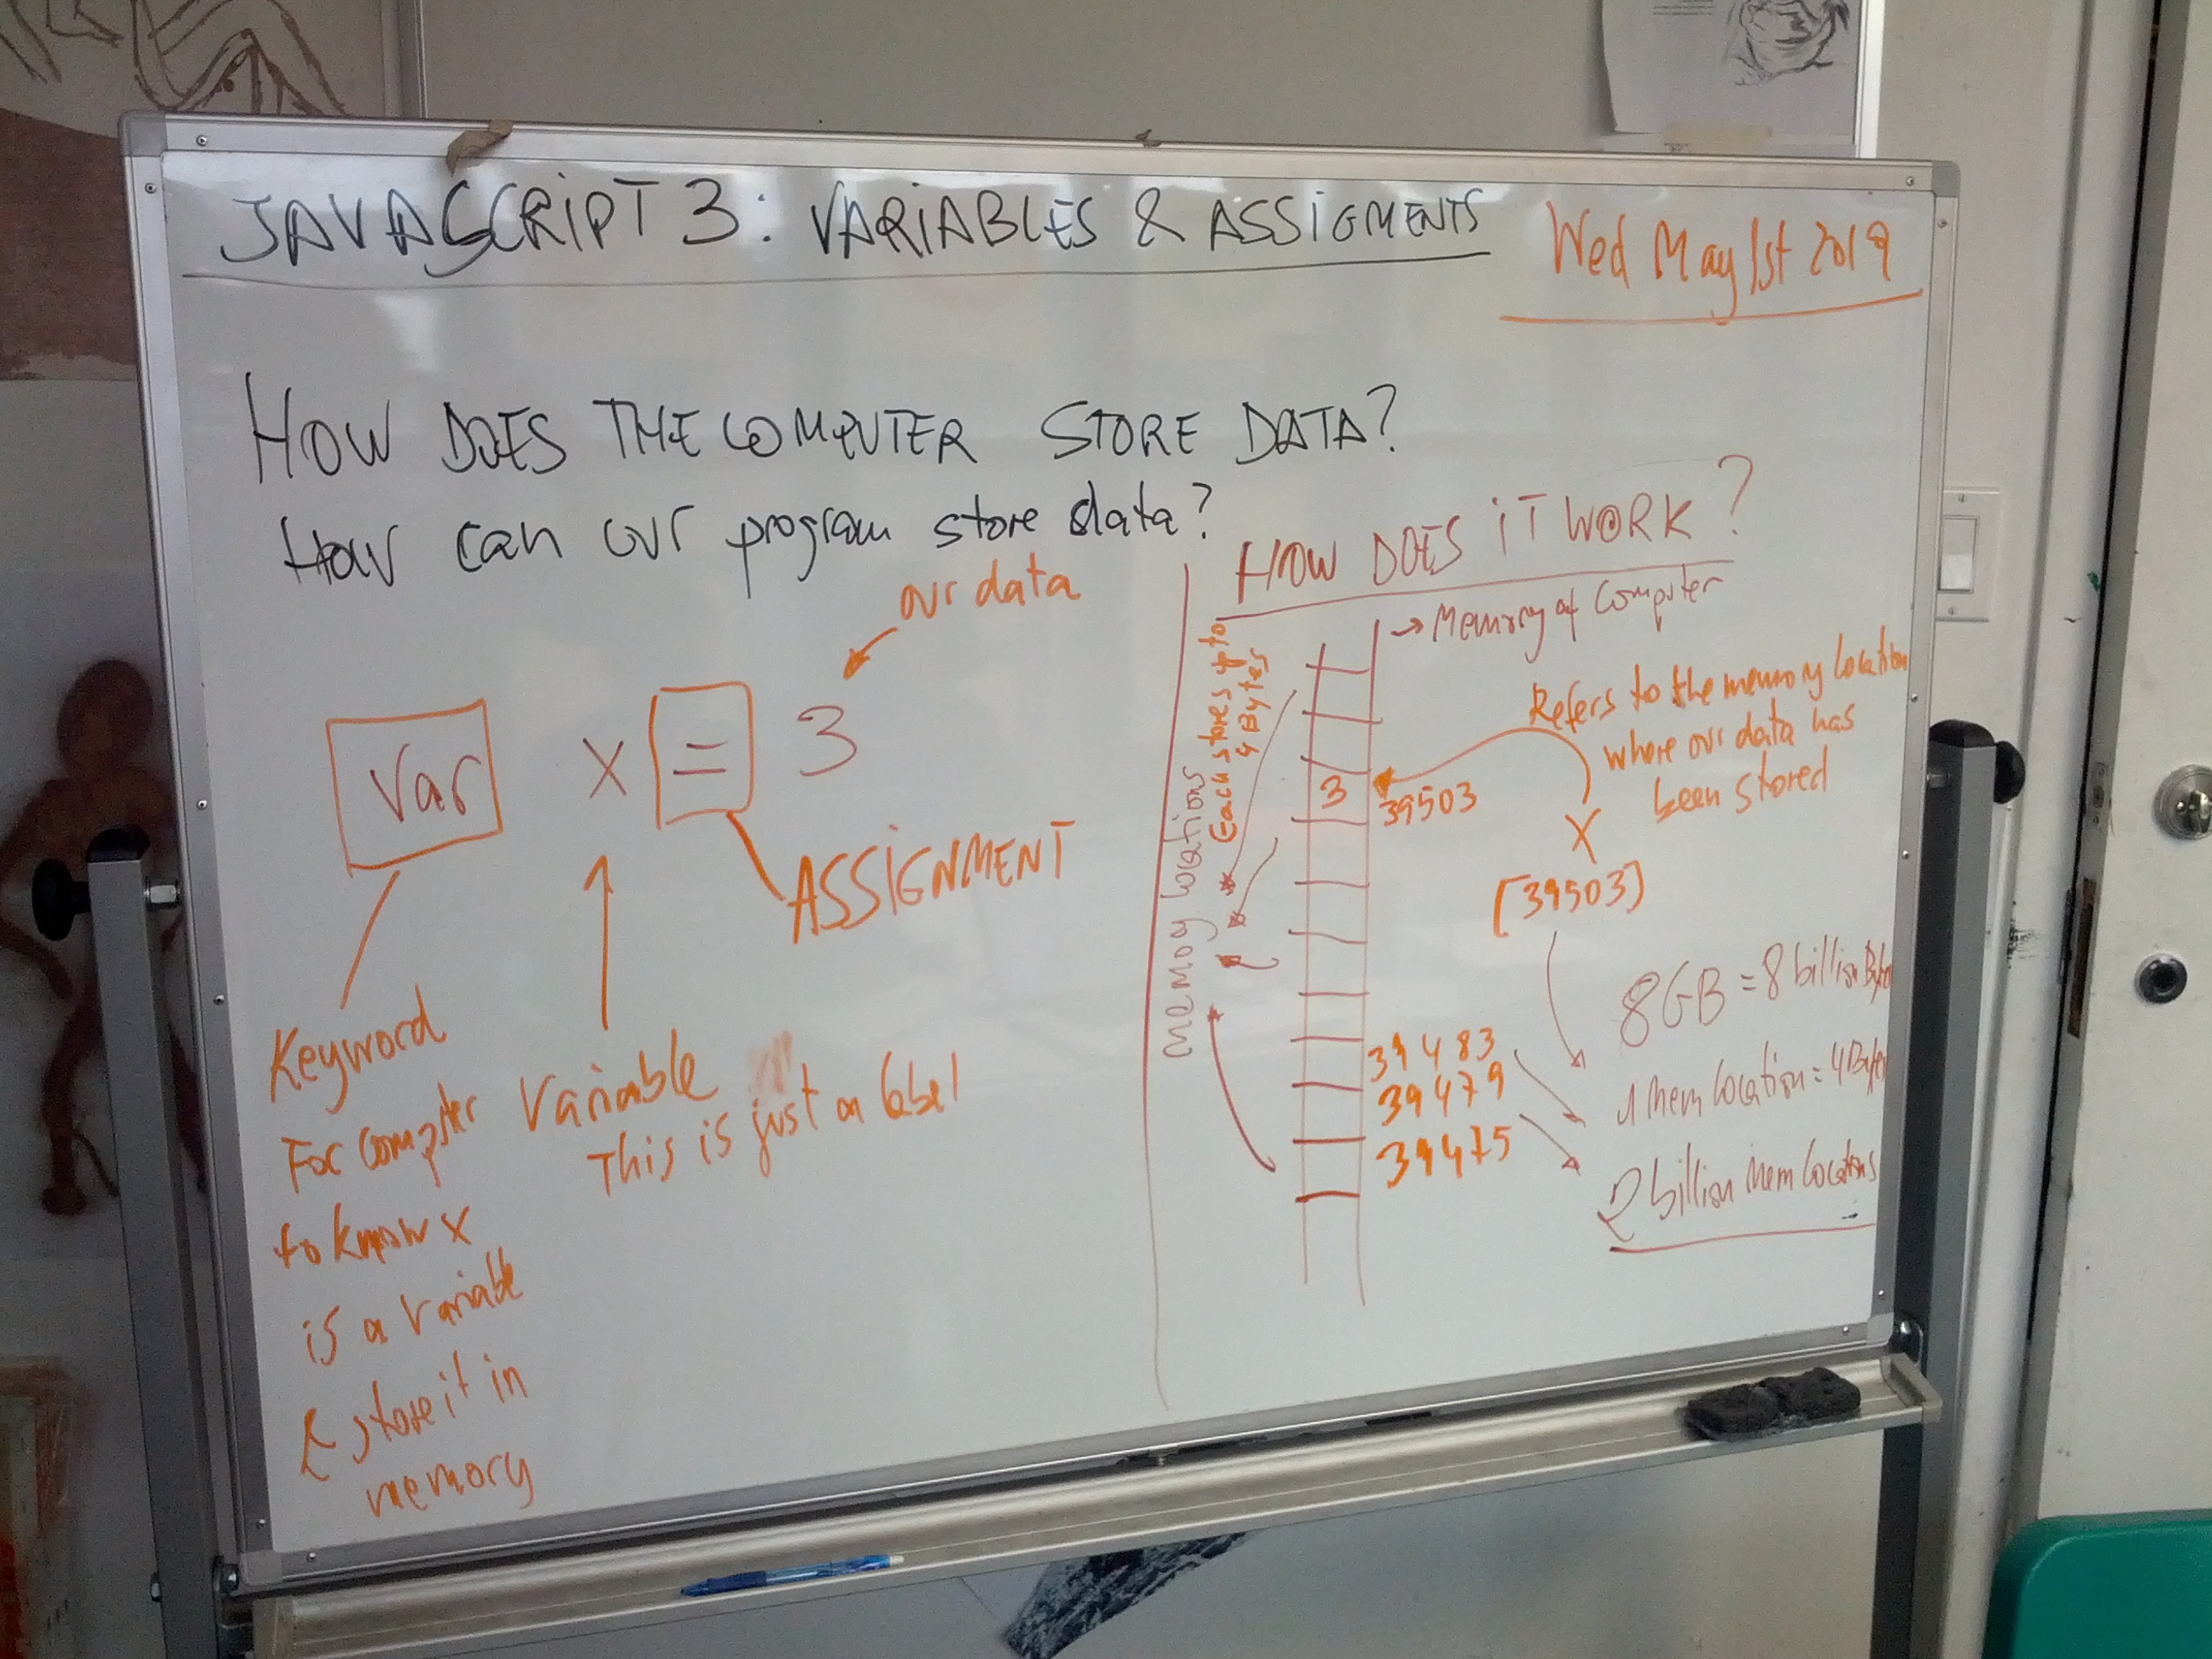 JAVASCRIPT 3: VARIABLES & ASSIGMENTS
Wed May 1st 2019
HOW DOES THE COMPUTER STORE DATA?
How can our program store data?
our data
var x = 3
ASSIGNMENT
Keyword
For compter
to know x
is a variable
& store it in
memory
Variable
This is just a label
HOW DOES IT WORK?
→ Memory of Computer
memoy locations
Each stores up to
4 Bytes
3
39503
Refers to the memory location
where our data has
been stored
x
[39503]
39483
39479
39475
8GB = 8 billion Bytes
1 Mem location = 4 Bytes
2 billion Mem locations